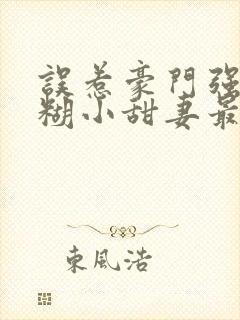 誤惹豪門强
糊小甜妻最
東風浩